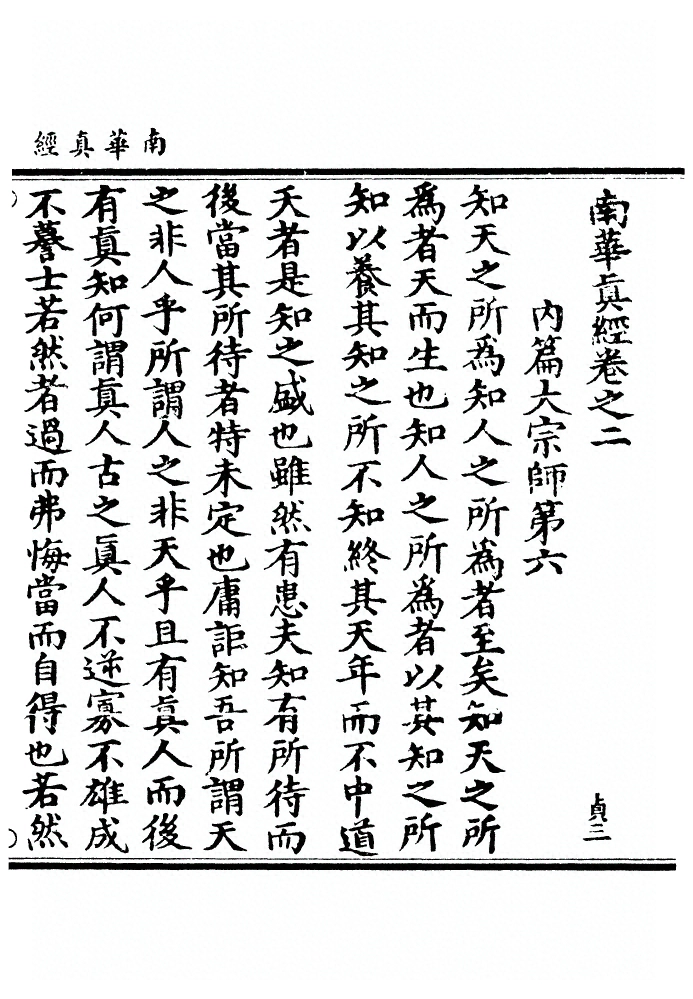 南華真經
南華眞經卷之二
貞三
內篇大宗師第六
知天之所為知人之所為者至矣知天之所
為者天而生也知人之所為者以其知之所
知以養其知之所不知終其天年而不中道
夭者是知之盛也雖然有患夫知有所待而
後當其所待者特未定也庸詎知吾所謂天
之非人乎所謂人之非天乎且有眞人而後
有眞知何謂眞人古之眞人不逆寡不雄成
不謩士若然者過而弗悔當而自得也若然